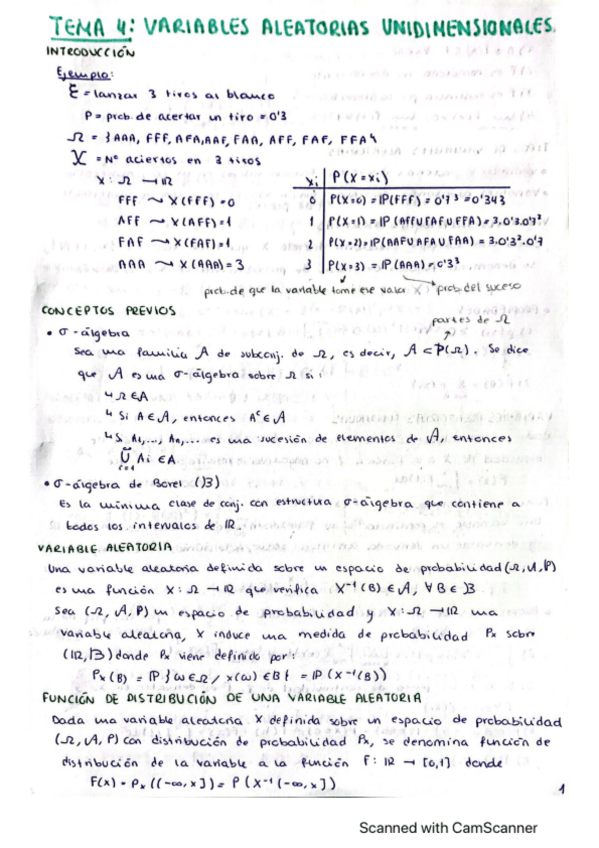 TEMA 4: VARIABLES ALEATORIAS UNIDIMENSIONALES.
INTRODUCCIÓN
Ejemplo:
Ɛ = lanzar 3 tiros al blanco
P = prob. de acertar un tiro = 0'3
Ω = {AAA, FFF, AFA, AAF, FAA, AFF, FAF, FFA}
X = Nº aciertos en 3 tiros
X: Ω → IR
FFF ⤳ X(FFF) = 0
AFF ⤳ X(AFF) = 1
FAF ⤳ X(FAF) = 1
AAA ⤳ X(AAA) = 3
xi | P(X=xi)
0 | P(X=0) = IP(FFF) = 0'7³ = 0'343
1 | P(X=1) = IP(AFF∪FAF∪FFA) = 3.0'3.0'7²
2 | P(X=2) = IP(AAF∪AFA∪FAA) = 3.0'3².0'7
3 | P(X=3) = IP(AAA) = 0'3³
prob. de que la variable tome ese valor xi
prob. del suceso
CONCEPTOS PREVIOS
• σ-álgebra
partes de Ω
Sea una familia A de subconj. de Ω, es decir, A ⊂ P(Ω). Se dice
que A es una σ-álgebra sobre Ω si:
↳ Ω ∈ A
↳ Si A ∈ A, entonces Aᶜ ∈ A
↳ Si A₁, ..., Aₙ, ... es una sucesión de elementos de A, entonces
∞
∪ Ai ∈ A
i=1
• σ-álgebra de Borel (IB)
Es la mínima clase de conj. con estructura σ-álgebra que contiene a
todos los intervalos de IR.
VARIABLE ALEATORIA
Una variable aleatoria definida sobre un espacio de probabilidad (Ω, A, P)
es una función X: Ω → IR que verifica X⁻¹(B) ∈ A, ∀ B ∈ IB
Sea (Ω, A, P) un espacio de probabilidad y X: Ω → IR una
variable aleatoria, X induce una medida de probabilidad Px sobre
(IR, IB) donde Px viene definido por:
Px(B) = IP{ω ∈ Ω / x(ω) ∈ B} = IP(X⁻¹(B))
FUNCIÓN DE DISTRIBUCIÓN DE UNA VARIABLE ALEATORIA
Dada una variable aleatoria X definida sobre un espacio de probabilidad
(Ω, A, P) con distribución de probabilidad Px, se denomina función de
distribución de la variable a la función F: IR → [0,1] donde
F(x) = Px((-∞, x]) = P(X⁻¹(-∞, x])
1
Scanned with CamScanner